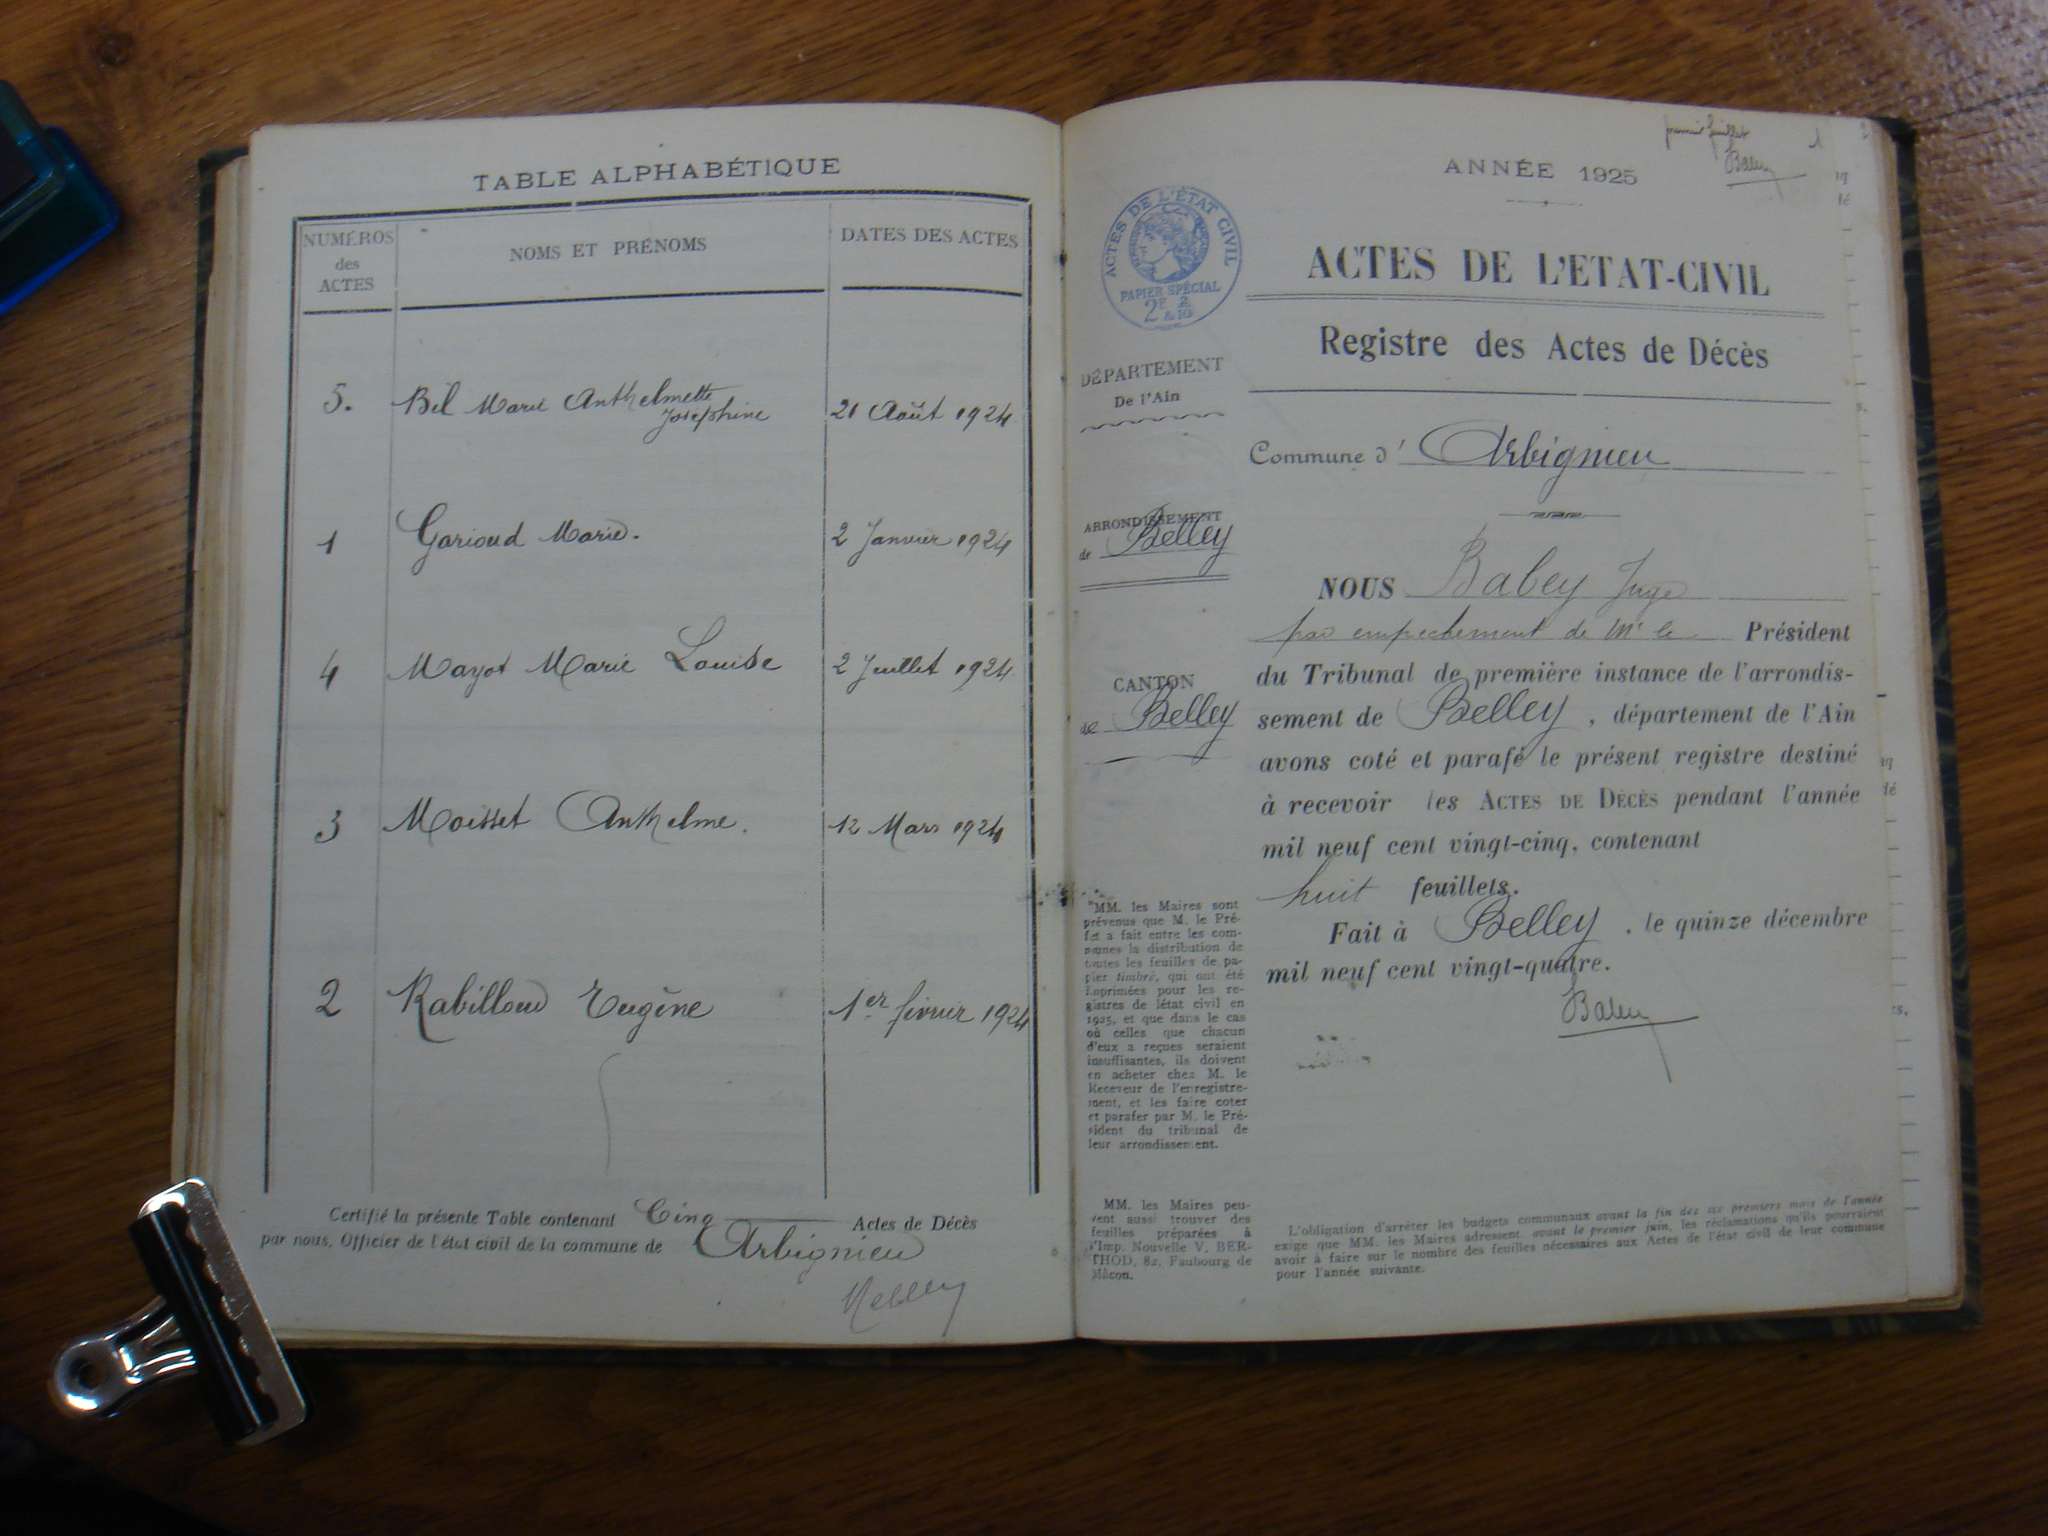 TABLE ALPHABÉTIQUE
NUMÉROS
des
ACTES
NOMS ET PRÉNOMS
DATES DES ACTES
5. Bel Marie Anthelmette
Josephine
21 Août 1924
1 Garioud Marie. 2 Janvier 1924
4 Mayot Marie Louise 2 Juillet 1924
3 Moisset Anthelme. 12 Mars 1924
2 Rabilloud Eugène 1er février 1924
Certifié la présente Table contenant Cinq Actes de Décès
par nous, Officier de l'état civil de la commune de Arbignieu
premier feuillet 1
Babey
ANNÉE 1925
ACTES DE L'ÉTAT CIVIL
PAPIER SPÉCIAL
2F & 2/10
ACTES DE L'ETAT-CIVIL
Registre des Actes de Décès
DÉPARTEMENT
De l'Ain
Commune d' Arbignieu
ARRONDISSEMENT
de Belley
CANTON
de Belley
NOUS Babey Juge
par empechement de Mr le Président
du Tribunal de première instance de l'arrondis-
sement de Belley, département de l'Ain
avons coté et parafé le présent registre destiné
à recevoir les ACTES DE DÉCÈS pendant l'année
mil neuf cent vingt-cinq, contenant
huit feuillets.
Fait à Belley, le quinze décembre
mil neuf cent vingt-quatre.
Babey
MM. les Maires sont
prévenus que M. le Pré-
fet a fait entre les com-
munes la distribution de
toutes les feuilles de pa-
pier timbré, qui ont été
imprimées pour les re-
gistres de létat civil en
1925, et que dans le cas
où celles que chacun
d'eux a reçues seraient
insuffisantes, ils doivent
en acheter chez M. le
Receveur de l'enregistre-
ment, et les faire coter
et parafer par M. le Pré-
sident du tribunal de
leur arrondissement.
MM. les Maires peu-
vent aussi trouver des
feuilles préparées à
l'Imp. Nouvelle V. BER-
THOD, 82, Faubourg de
Mâcon.
L'obligation d'arrêter les budgets communaux avant la fin des six premiers mois de l'année
exige que MM. les Maires adressent, avant le premier juin, les réclamations qu'ils pourraient
avoir à faire sur le nombre des feuilles nécessaires aux Actes de l'état civil de leur commune
pour l'année suivante.